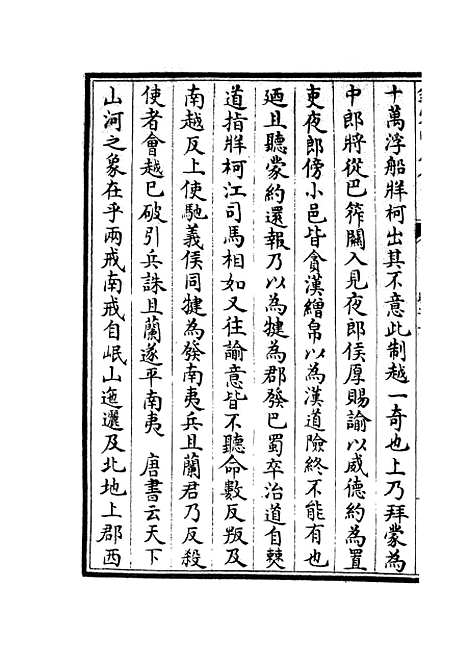 十萬浮船牂柯出其不意此制越一奇也上乃拜蒙為
中郎將從巴筰關入見夜郎侯厚賜諭以威德約為置
吏夜郎傍小邑皆貪漢繒帛以為漢道險終不能有也
廼且聽蒙約還報乃以為犍為郡發巴蜀卒治道自僰
道指牂柯江司馬相如又往諭意皆不聽命數反叛及
南越反上使馳義侯同犍為發南夷兵且蘭君乃反殺
使者會越已破引兵誅且蘭遂平南夷　唐書云天下
山河之象在乎兩戒南戒自岷山迤邐及北地上郡西